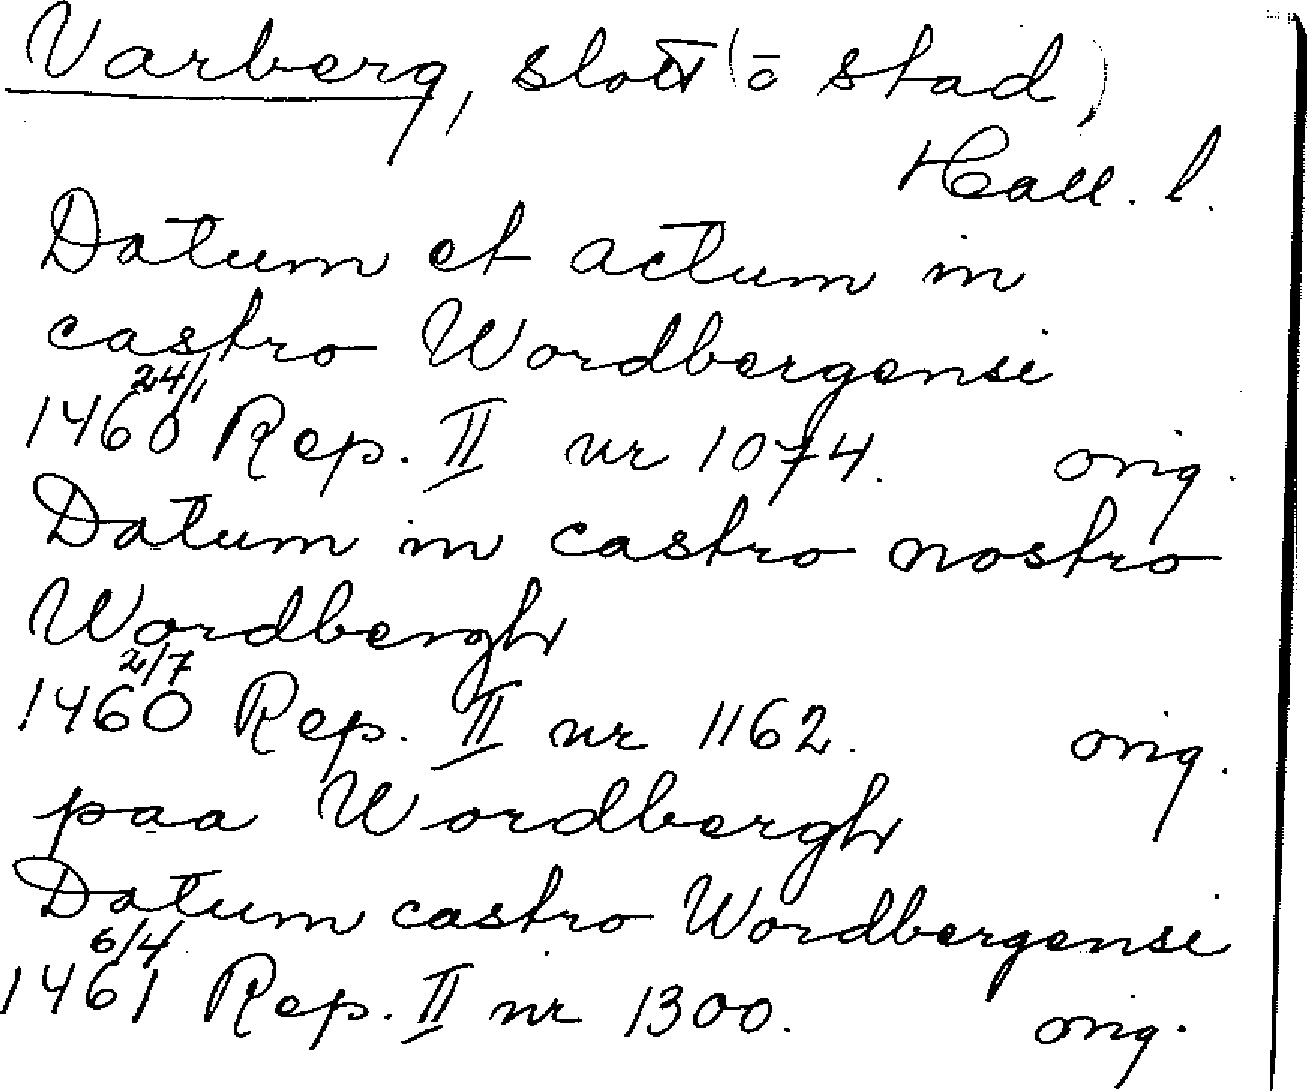 Varberg, slott (o stad)
Hall. l.
Datum et actum in
castro Wordbergensi
24/1
1460 Rep. II nr 1074. orig.
Datum in castro nostro
Wordbergh
2/7
1460 Rep. II nr 1162. orig.
paa Wordbergh
Datum castro Wordbergensi
6/4
1461 Rep. II nr 1300. orig.